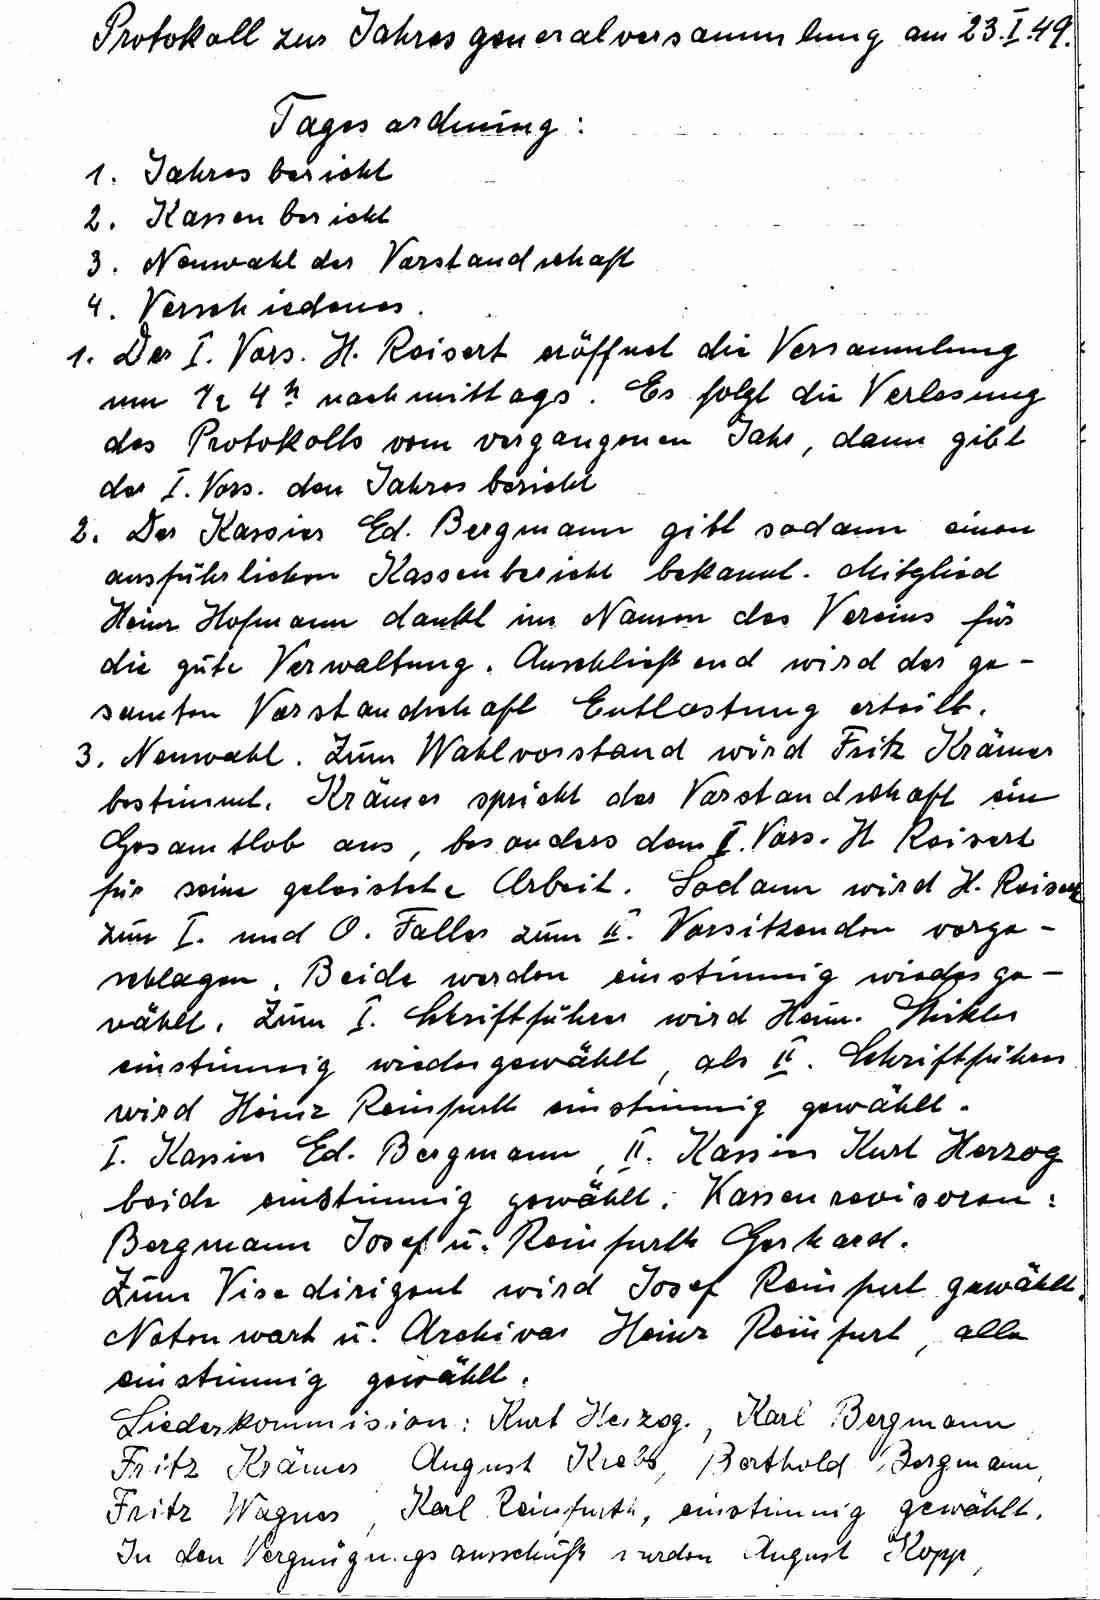 Protokoll zur Jahresgeneralversammlung am 23.I.49.
Tagesordnung:
1. Jahresbericht
2. Kassenbericht
3. Neuwahl der Vorstandschaft
4. Verschiedenes.
1. Der I. Vors. H. Reisert eröffnet die Versammlung
um 1/2 4 h nachmittags. Es folgt die Verlesung
des Protokolls vom vergangenen Jahr, dann gibt
der I. Vors. den Jahresbericht
2. Der Kassier Ed. Bergmann gibt sodann einen
ausführlichen Kassenbericht bekannt. Mitglied
Heinr Hofmann dankt im Namen des Vereins für
die gute Verwaltung. Anschließend wird der ge-
samten Vorstandschaft Entlastung erteilt.
3. Neuwahl. Zum Wahlvorstand wird Fritz Krämer
bestimmt. Krämer spricht der Vorstandschaft ein
Gesamtlob aus, besonders dem II. Vors. H Reisert
für seine geleistete Arbeit. Sodann wird H. Reisert
zum I. und O. Faller zum II. Vorsitzenden vorge-
schlagen. Beide werden einstimmig wiederge-
wählt. Zum I. Schriftführer wird Heinr.
einstimmig wiedergewählt, als II. Schriftführer
wird Heinz Reinfurth einstimmig gewählt.
I. Kassier Ed. Bergmann, II. Kassier Kurt Herzog
beide einstimmig gewählt. Kassenrevisoren:
Bergmann Josef u. Reinfurth Gerhard.
Zum Visedirigent wird Josef Reinfurt gewählt.
Notenwart u. Archivar Heinz Reinfurt, alle
einstimmig gewählt.
Liederkommision: Kurt Herzog, Karl Bergmann,
Fritz Krämer August Krebs, Berthold Bergmann,
Fritz Wagner, Karl Reinfurth, einstimmig gewählt.
In den Vergnügungsausschuß wurden August Kopp,